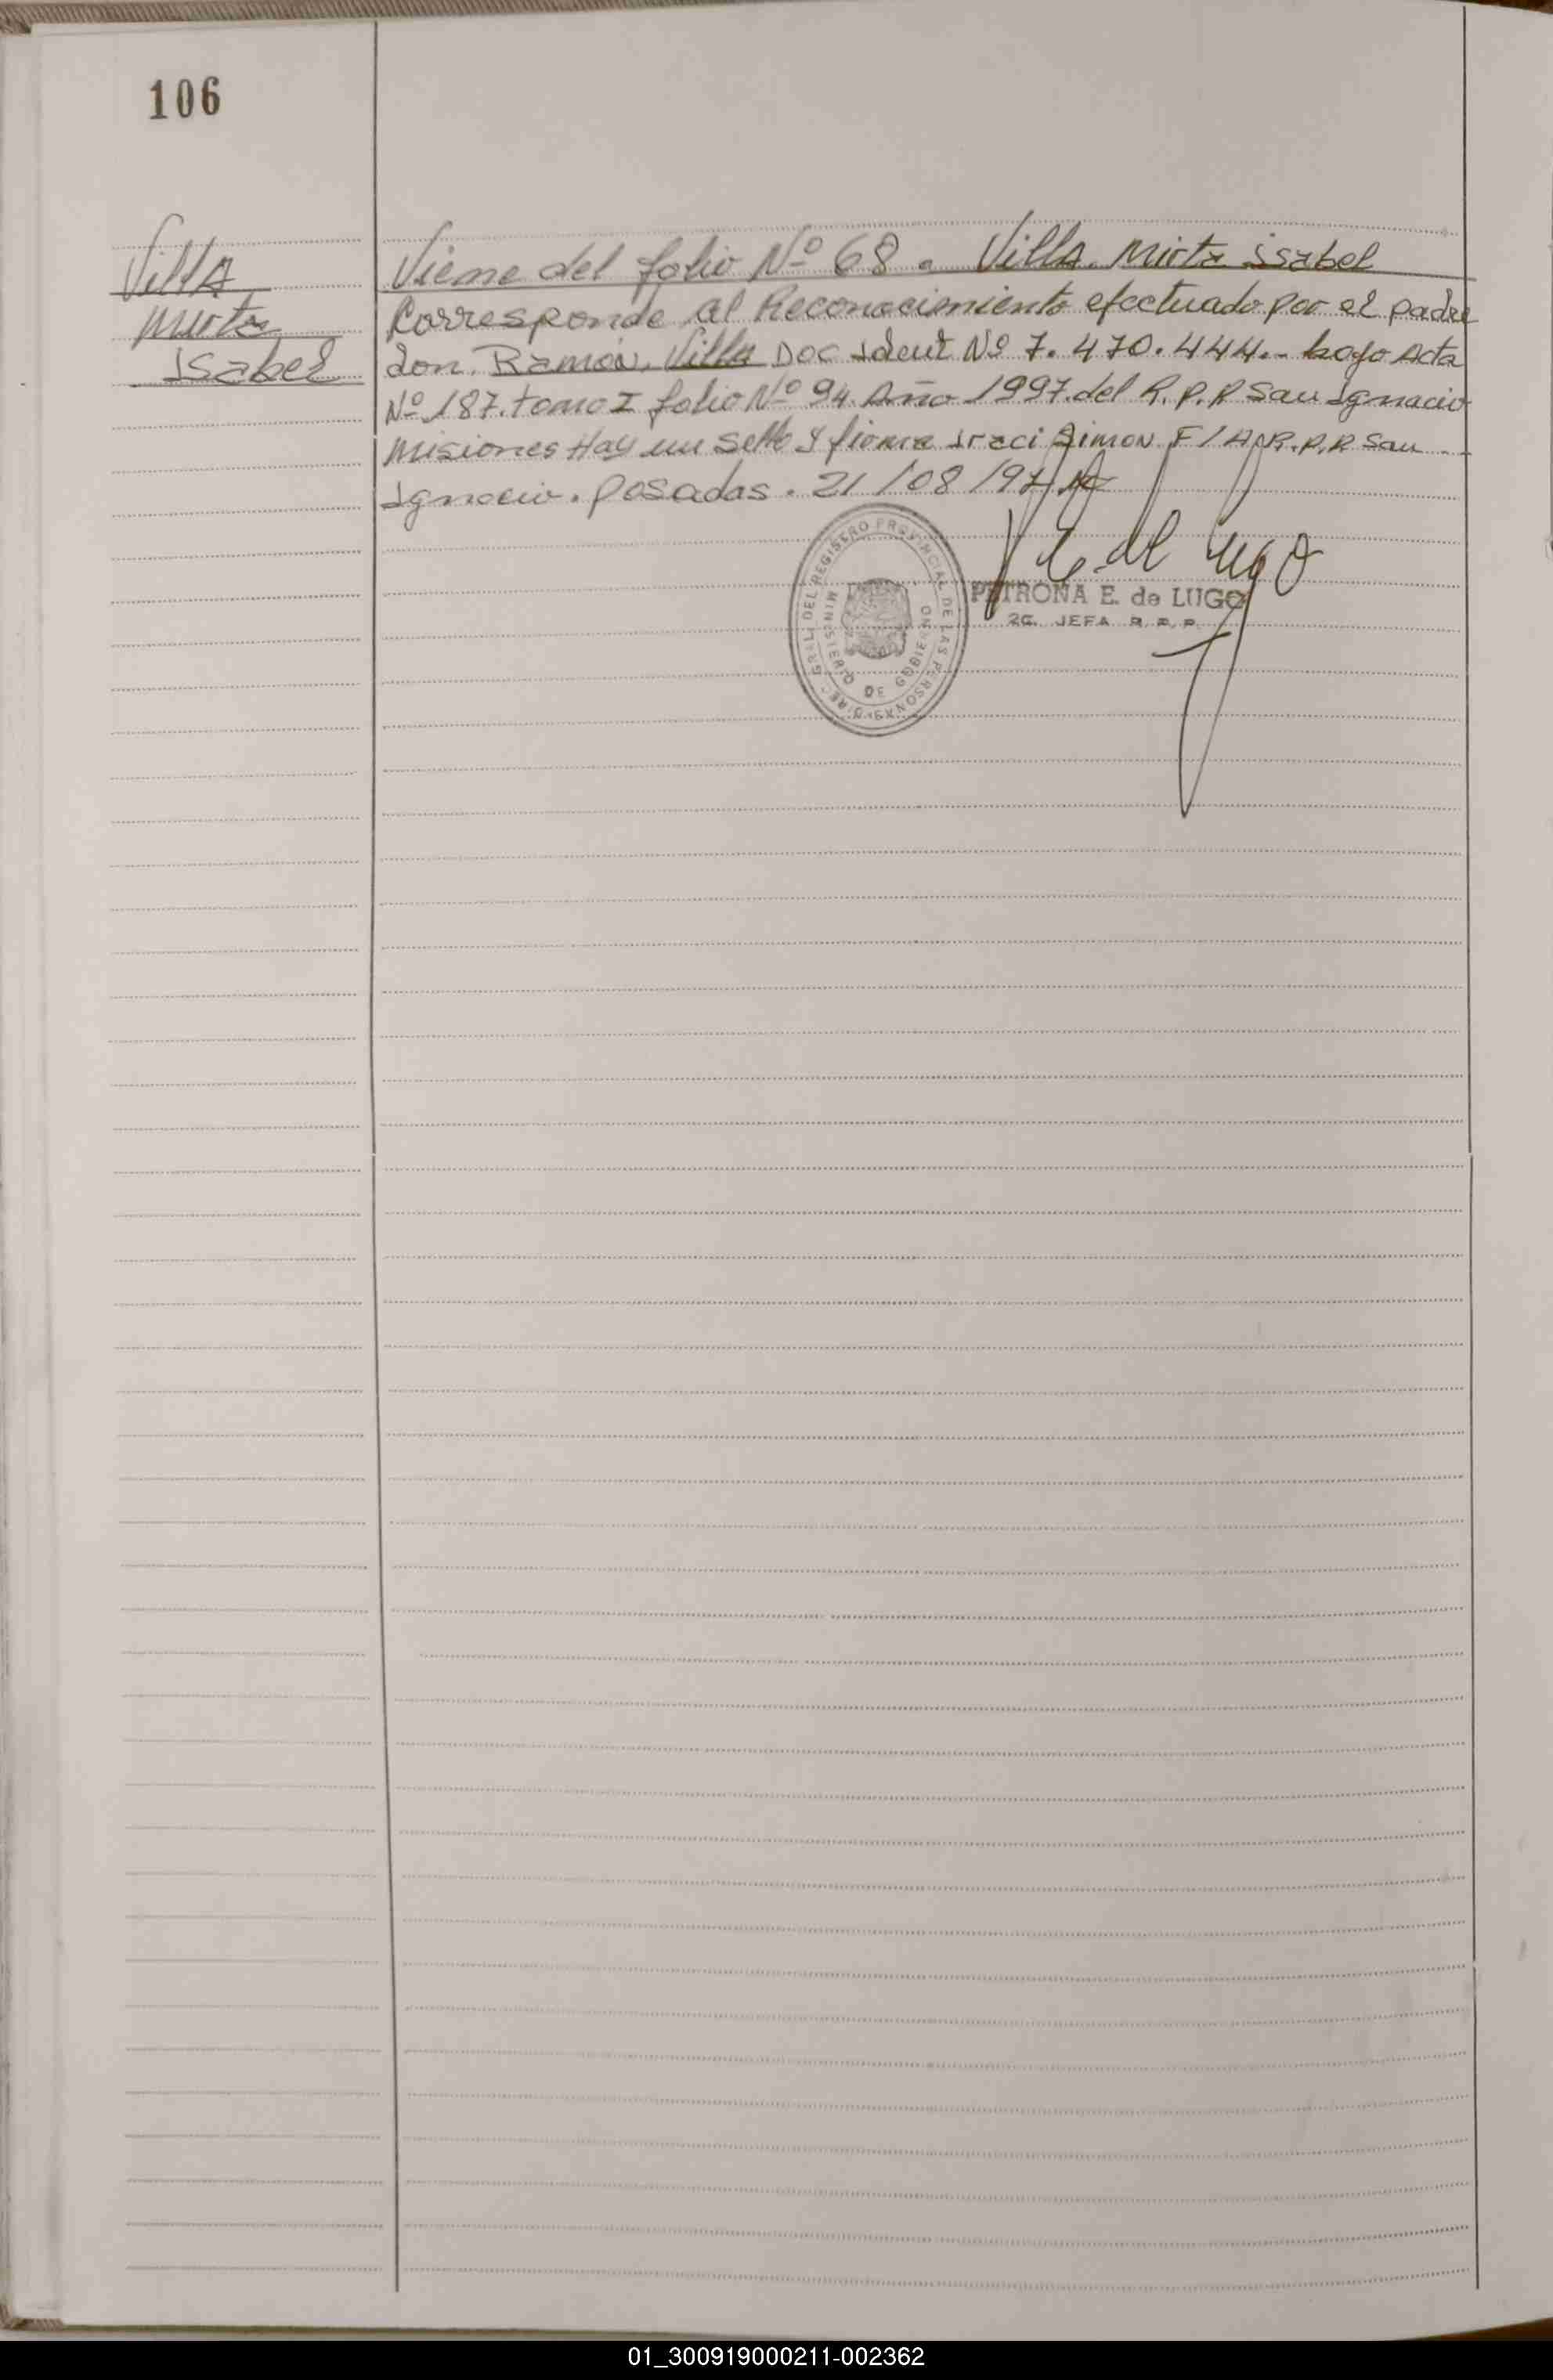 106
Villa
Mirta
Isabel
Viene del folio Nº 68. Villa. Mirta Isabel
Corresponde al Reconocimiento efectuado por el padre
don. Ramón. Villa Doc Ident Nº 7.470.444.- bajo Acta
Nº 187. tomo I folio Nº 94 Año 1997. del R.P.P San Ignacio
Misiones Hay un sello y firma Iraci Simon F/A R.P.P San
Ignacio. Posadas. 21/08/97
DIREC. GRAL. DEL REGISTRO PROVINCIAL DE LAS PERSONAS
MINISTERIO DE GOBIERNO
E. de Lugo
PETRONA E. de LUGO
2ª. JEFA R.P.P.
01_300919000211-002362